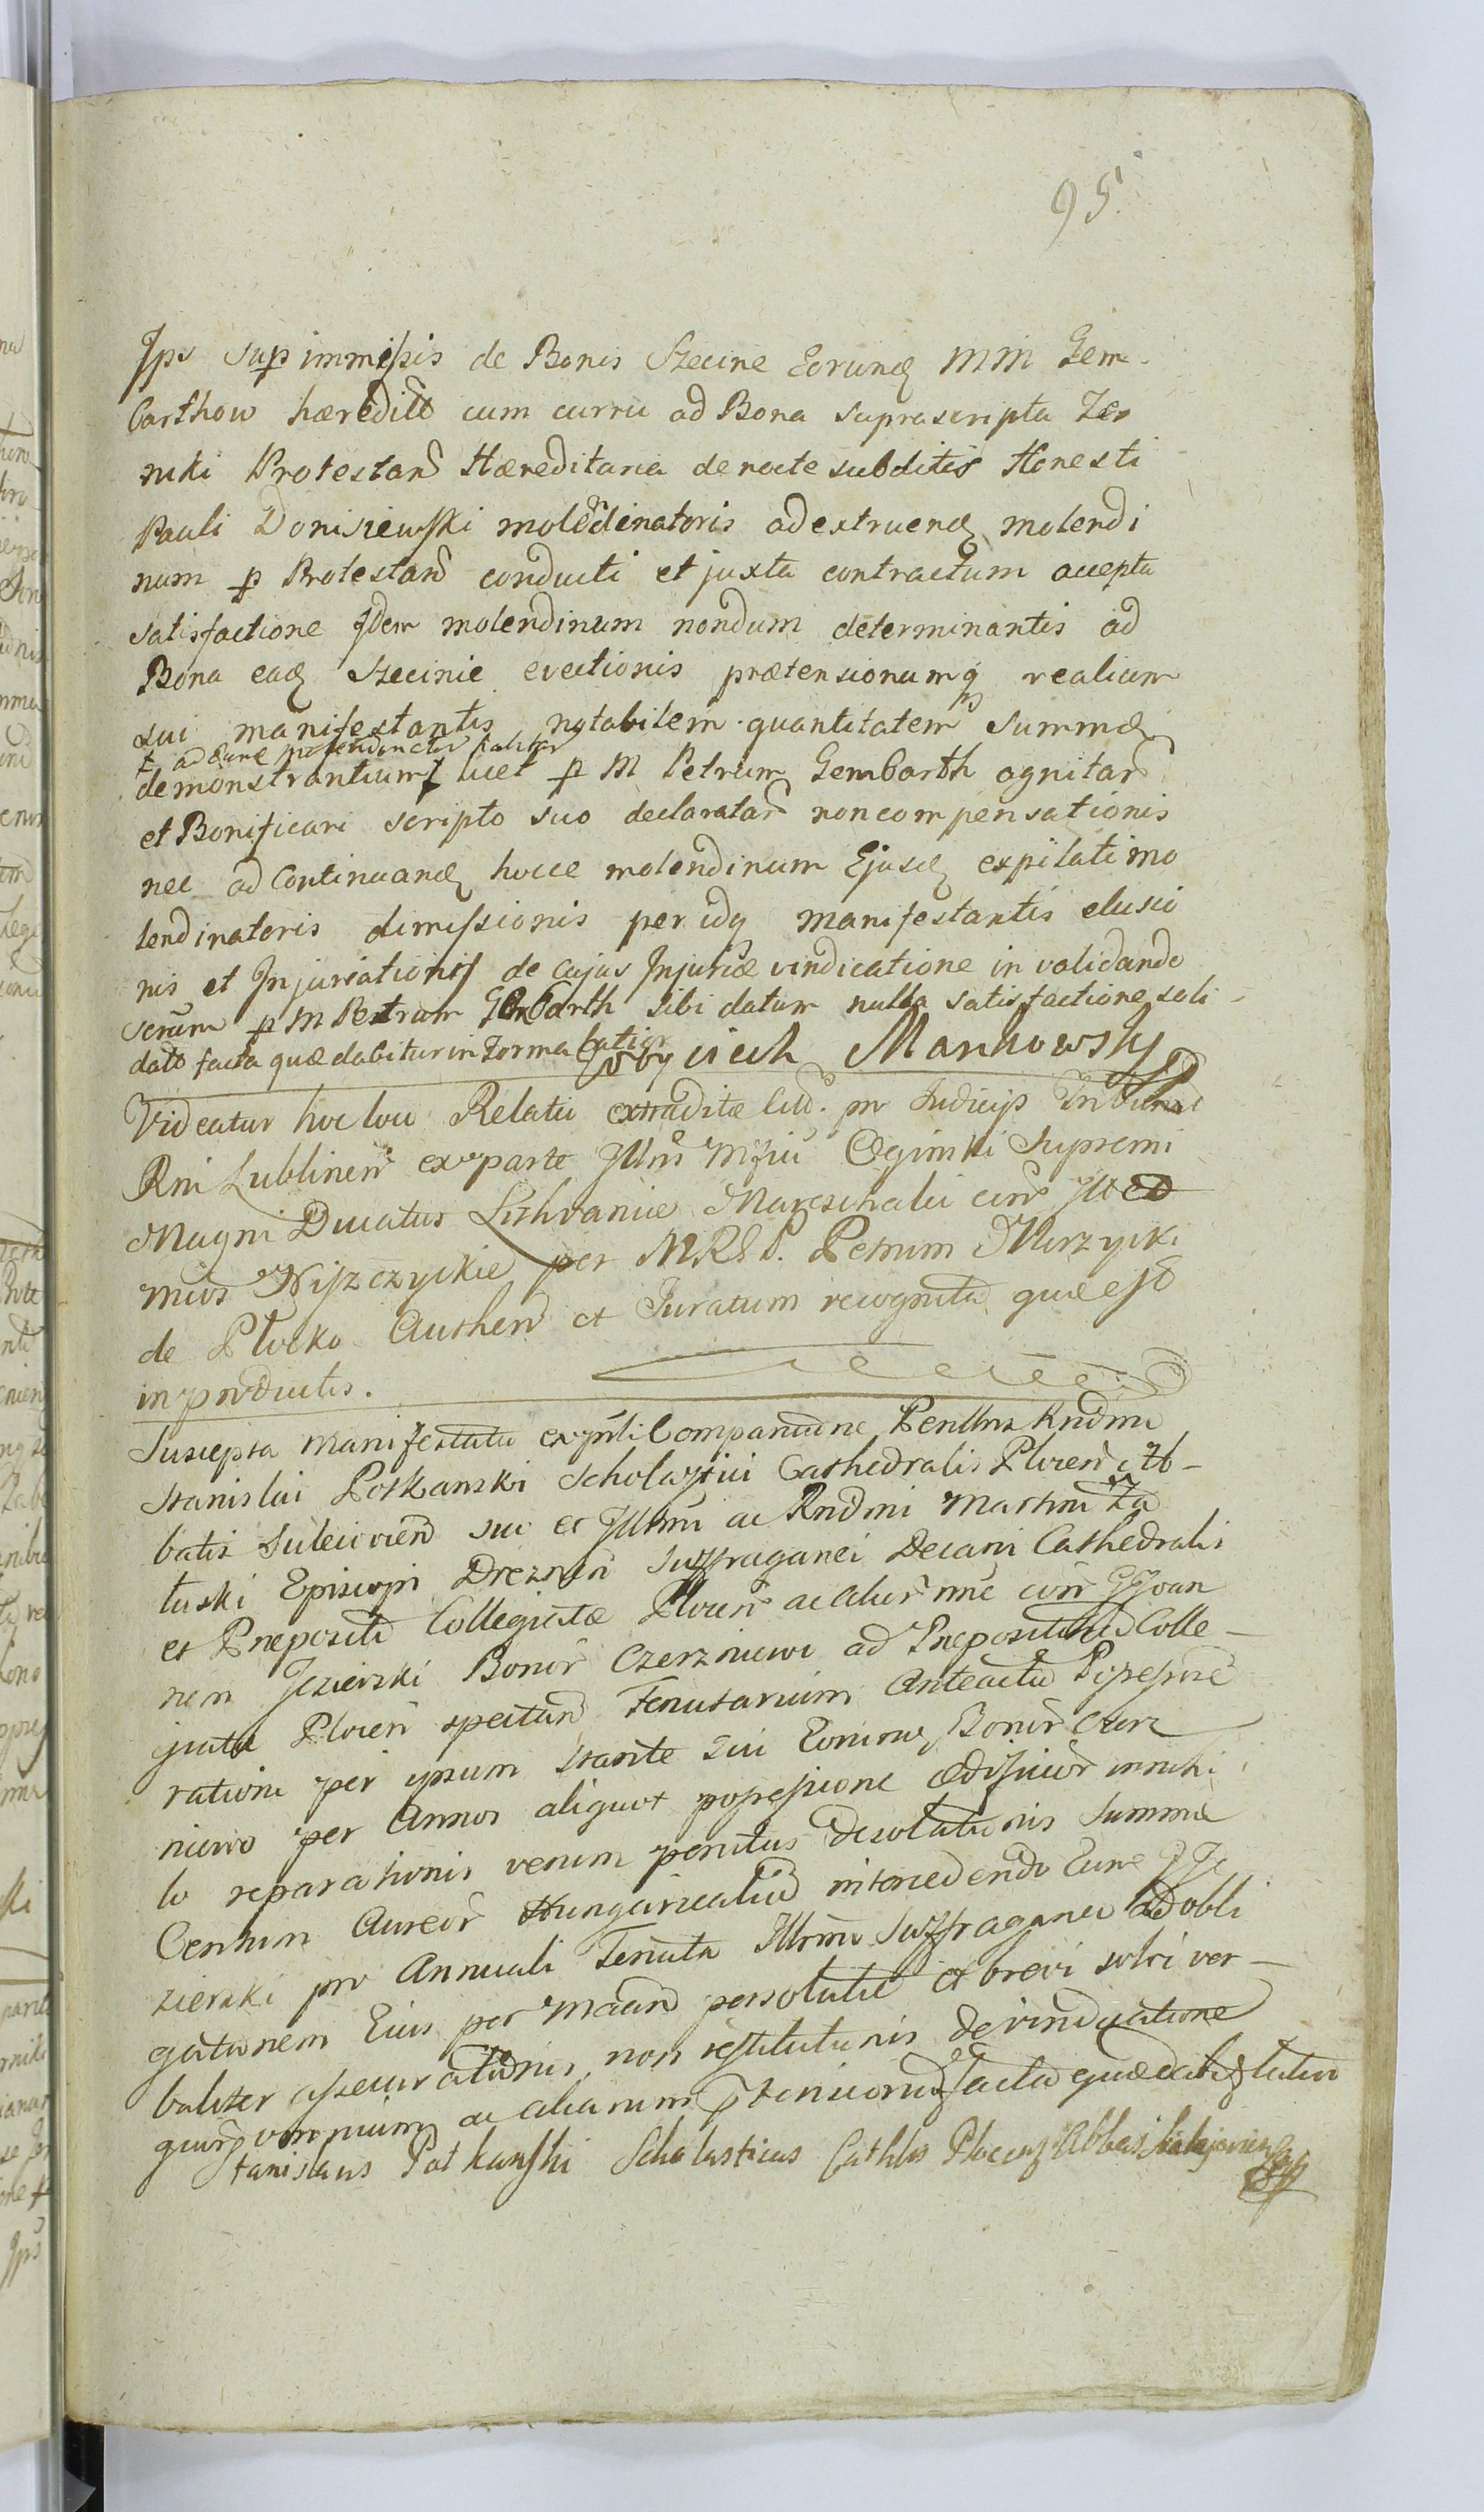 95.
Jps sup immissis de Bonis Szecine Eorund MM Gem-
barthow hæredit cum curru ad Bona suprascripta Zer
niki Protestan Hæreditaria de nocte subditis Honesti
Pauli Donisiewski molendinatoris ad extruend molendi
num p Protestan conducti et juxta contractum accepta
satisfactione Jdem molendinum nondum determinantis ad
Bona ead Szecinie evectionis prætensionumq realium
sui manifestantis notabilem quantitatem summæ
ad Eune taliter
demonstrantium licet p M Petrum Gembarth agnitar
et Bonificari scripto suo declaratar non compensationis
nec ad Continuand hocce molendinum Ejusd expilati mo
lendinatoris dimissionis per idq manifestantis elusio
nis et Injuriationis de cujus Injuriæ vindicatione invalidando
scrum p M Petrum Gembarth sibi datum nulla satisfactione soli-
dato facta quæ dabitur in forma latior
Woyciech Mankowsky
Videatur hoc loco Relatio extraditæ Citt. pr Judicijs Tribunal
Rni Lublinen ex parte Jllm Mfici Oginski Supremi
Magni Ducatus Lithvaniæ Marschalci con
micos Nijszczyckie per MRSP. Petrum Murzycki
de Plocko Authen et Juratum recognita quæ est
in productis.
Suscepta manifestatio ex pnti Comparitione Penllris Rndmi
Stanislai Potkanski Scholastici Cathedralis Plocen Ab-
batis Suleiovien suo et Jllmi ac Rndmi Martini Za
łuski Episcopi Dreznen Suffraganei Decani Cathedralis
et Præpositi Collegiatæ Plocen ac alior nne con G Joan
nem Jezierski Bonor Czerzniewo ad Præpositura Colle-
giata Plocen spectan Tenutarium Anteacto Possessore
ratione per ipsum stante sui Eorund Bonor Czerz
niewo per Annos aliquot possessione ædificior in nihi
lo reparationis verum penitus desolationis summæ
Centum Aureor Hungaricaliu intercedendo Eune G Je
zierski pro Annuali Tenuta Jllrmo Suffraganeo ad obli
gationem Eius per Mdan persolutæ et brevi solvi ver-
baliter assecurationis, non restitutionis de vindicatione
quor omnium ac aliarum ptensionu facta quæ dabit latior
Stanislaus Potkanski Scholasticus Cathlis Plocens Abbas Sulejoviens